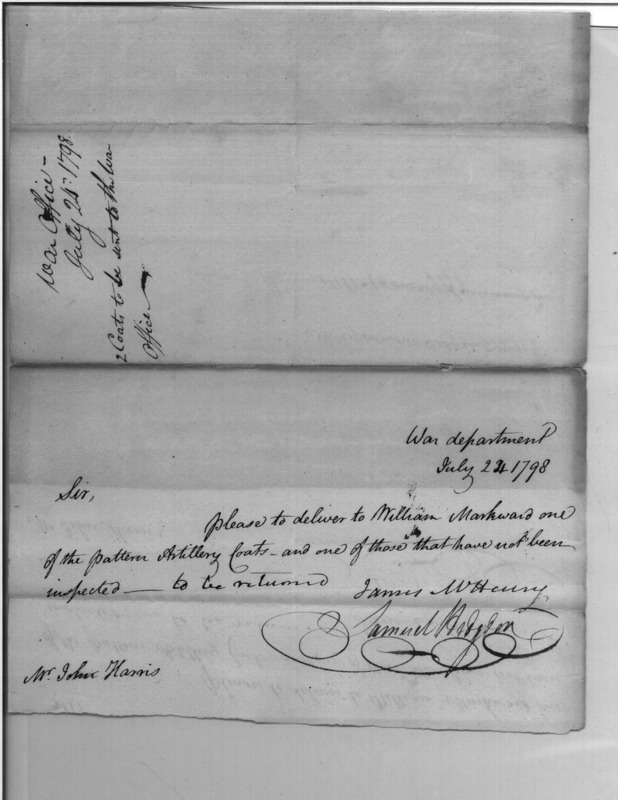 War Office -
July 24th 1798.
2 Coats to be sent to the War
Office
War department
July 24 1798
Sir,
please to deliver to William Markward one
of the pattern Artillery Coats - and one of those that have not been
inspected — to be returned James McHenry
Samuel Hodgdon
Mr. John Harris